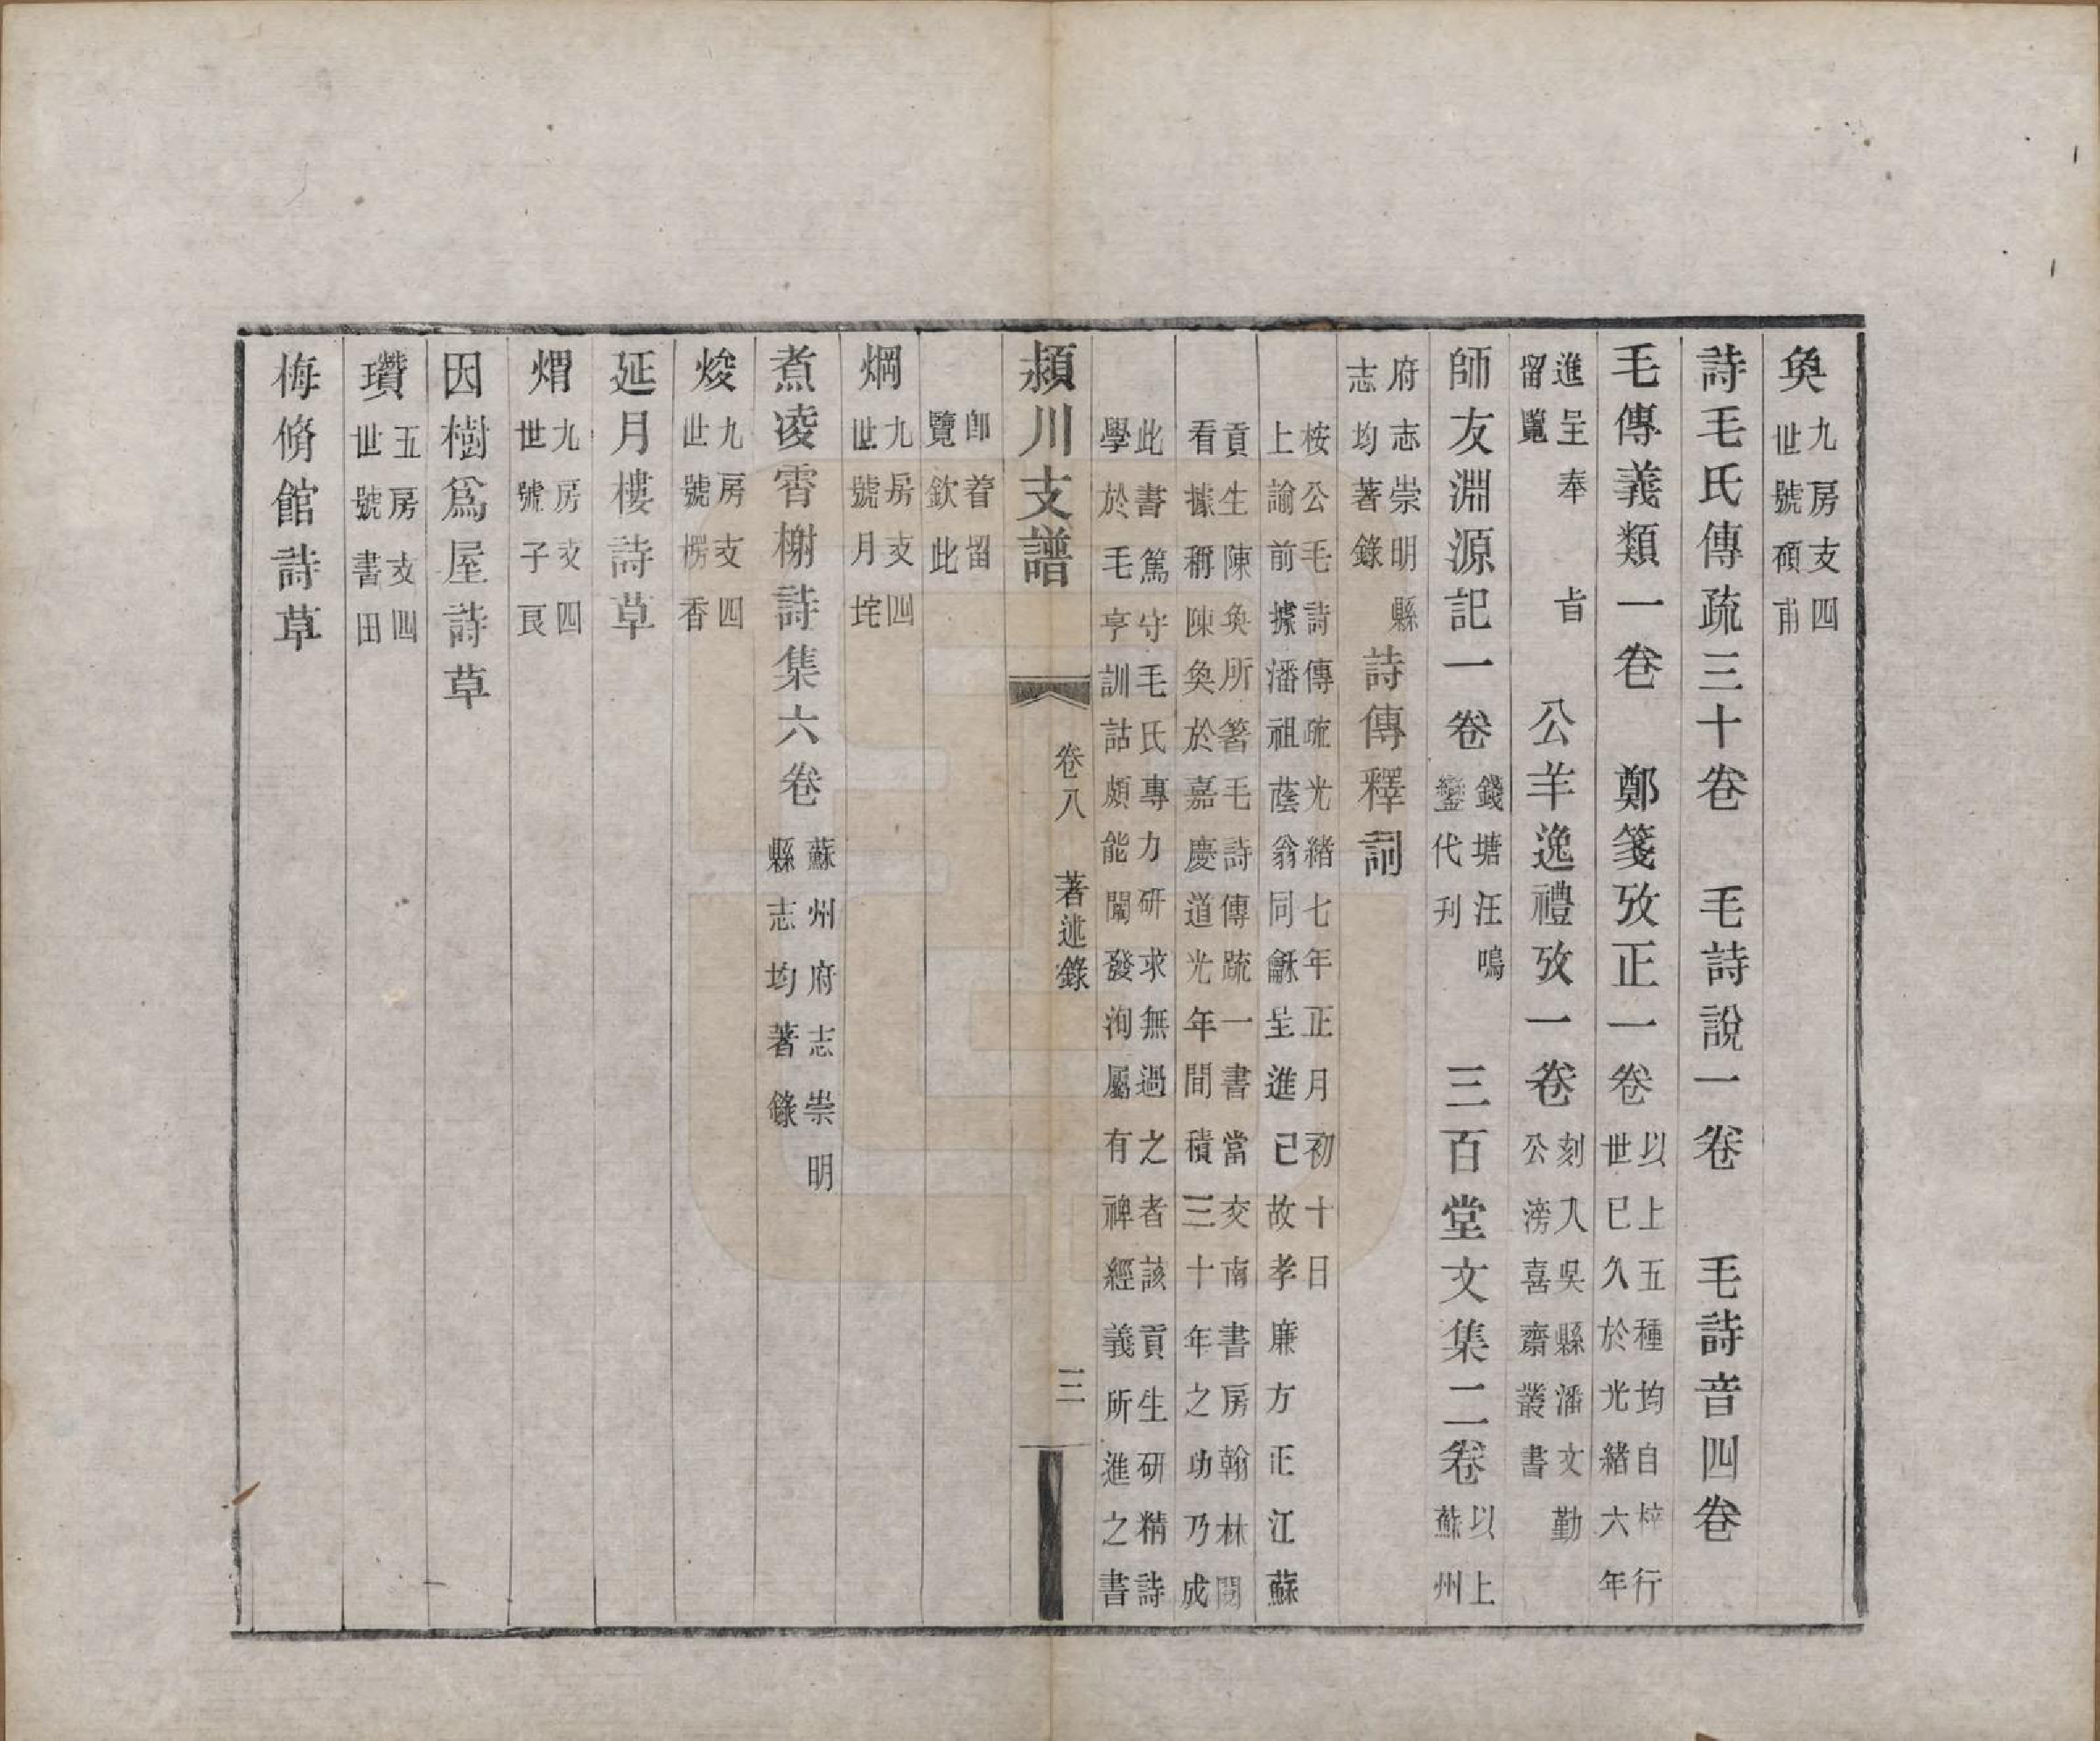 奐九房支四世號碩甫
詩毛氏傳疏三十卷 毛詩說一卷 毛詩音四卷
毛傳義類一卷 鄭箋攷正一卷以上五種均自梓行世已久於光緒六年
進呈奉 旨留覽 公羊逸禮攷一卷刻入吳縣潘文勤公滂喜齋叢書
師友淵源記一卷錢塘汪鳴鑾代刋 三百堂文集二卷以上蘇州
府志崇明縣志均著錄詩傳釋詞
桉公毛詩傳疏光緒七年正月初十日上諭前據潘祖蔭翁同龢呈進已故孝廉方正江蘇
貢生陳奐所箸毛詩傳疏一書當交南書房翰林閱看據稱陳奐於嘉慶道光年間積三十年之功乃成
此書篤守毛氏專力研求無過之者該貢生研精詩學於毛亨訓詁頗能闡發洵屬有裨經義所進之書
卽着畱覽欽此
潁川支譜 卷八 著述錄 三
焵九房支四世號月垞
煮凌霄榭詩集六卷蘇州府志崇明縣志均著錄
焌九房支四世號楞香
延月樓詩草
煟九房支四世號子良
因樹爲屋詩草
瓚五房支四世號書田
梅脩館詩草